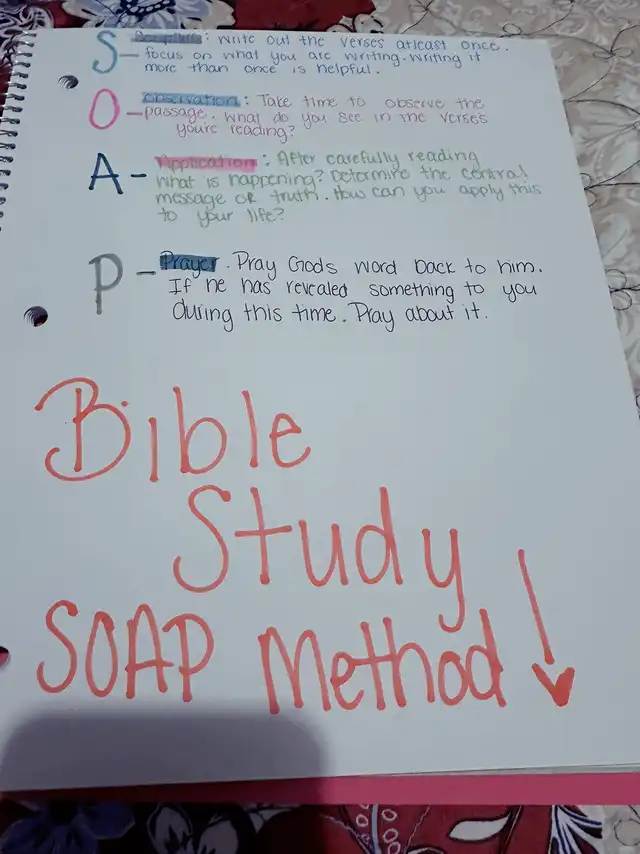 S - Scripture: Write out the verses atleast once.
focus on what you are writing. Writing it
more than once is helpful.
O - Observation: Take time to observe the
passage. What do you see in the verses
youre reading?
A - Application: After carefully reading
what is happening? Determine the central
message or truth. How can you apply this
to your life?
P - Prayer. Pray Gods word back to him.
If he has revealed something to you
during this time. Pray about it.
Bible
Study
SOAP Method